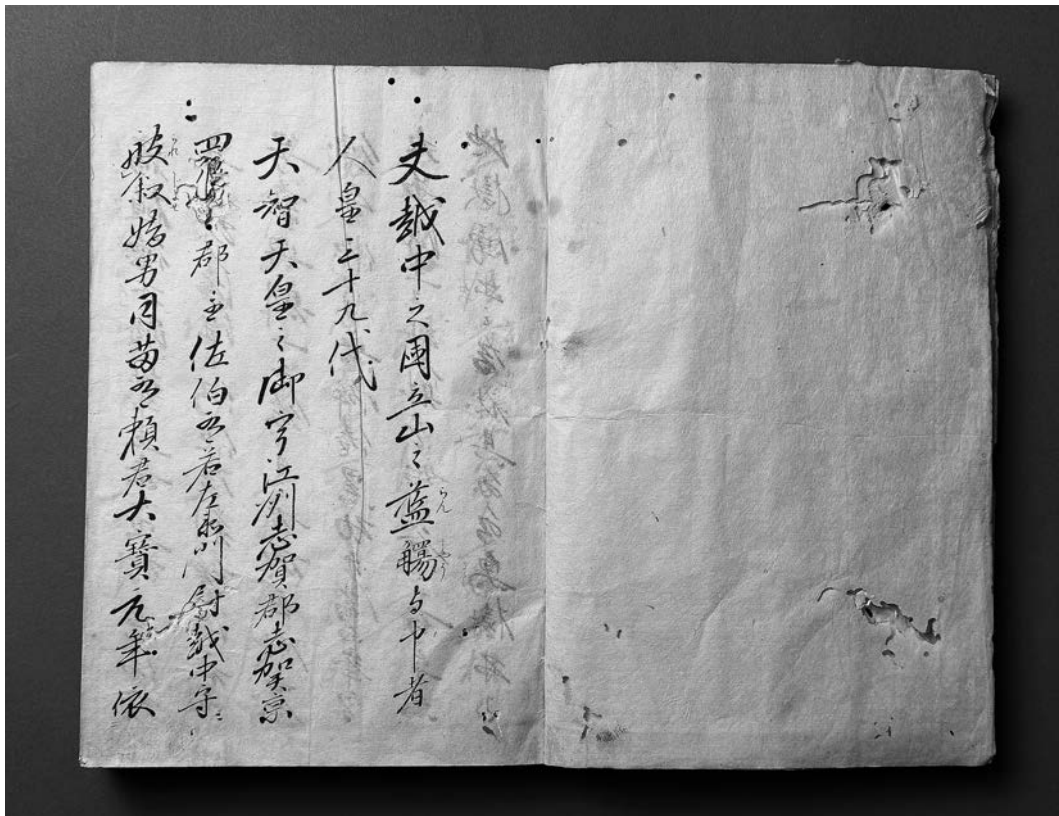 夫越中之国立山之藍觴与申者
らんしやう
人皇三十九代
天智天皇之御宇江州志賀郡志賀京
四條郡主佐伯有若左衛門尉越中守
被叙嫡男同苗有頼君大寶元年依